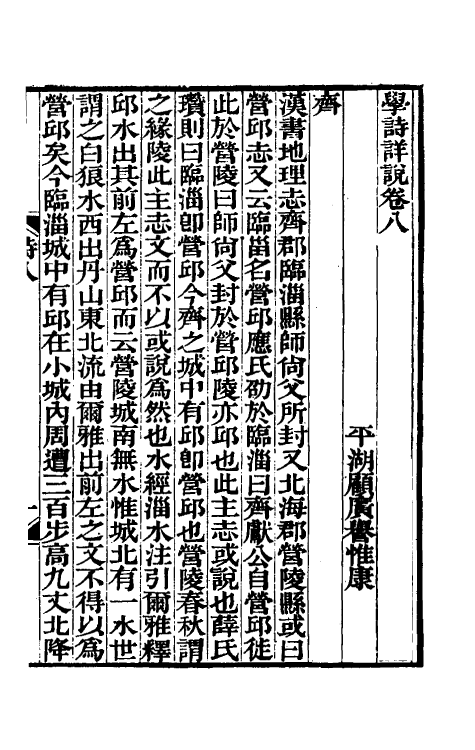 學詩詳說卷八
平湖顧廣譽惟康
齊
漢書地理志齊郡臨淄縣師尙父所封又北海郡營陵縣或曰
營邱志又云臨甾名營邱應氏劭於臨淄曰齊獻公自營邱徙
此於營陵曰師尙父封於營邱陵亦邱也此主志或說也薛氏
瓚則曰臨淄卽營邱今齊之城中有邱卽營邱也營陵春秋謂
之緣陵此主志文而不以或說爲然也水經淄水注引爾雅釋
邱水出其前左爲營邱而云營陵城南無水惟城北有一水世
謂之白狼水西出丹山東北流由爾雅出前左之文不得以爲
營邱矣今臨淄城中有邱在小城內周遭三百步高九丈北降
詩八
一